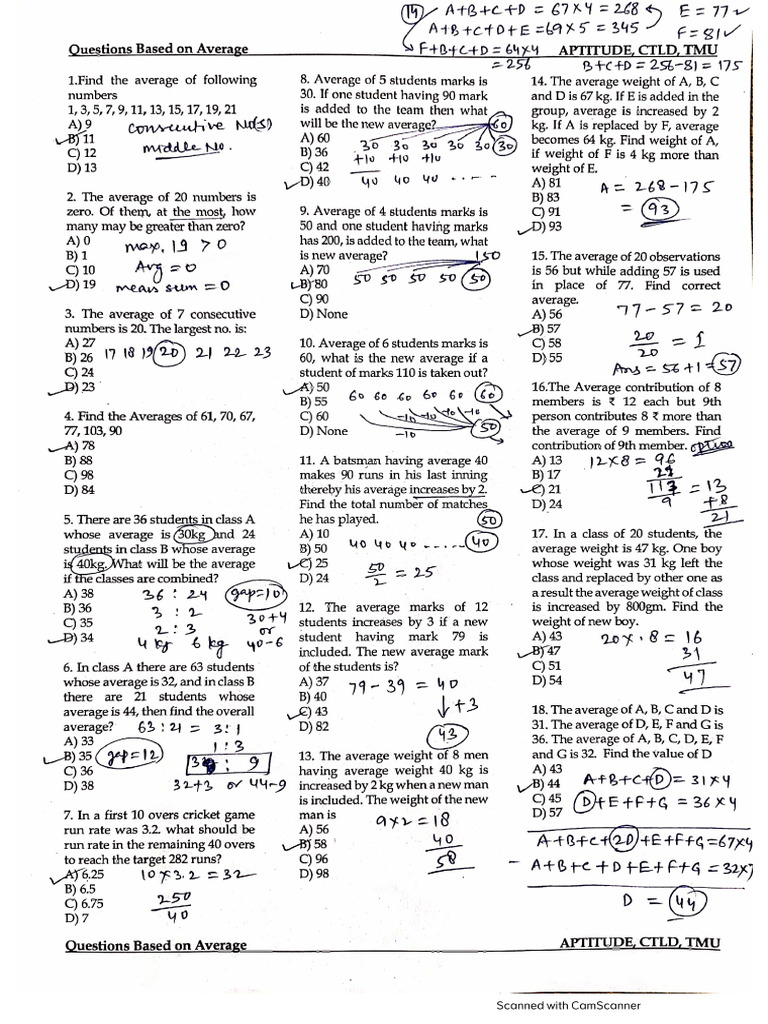 (14) A+B+C+D = 67×4 = 268
A+B+C+D+E = 69×5 = 345
F+B+C+D = 64×4
= 256
E = 77
F = 81
B+C+D = 256-81 = 175
Questions Based on Average
APTITUDE, CTLD, TMU
1.Find the average of following
numbers
1, 3, 5, 7, 9, 11, 13, 15, 17, 19, 21
A) 9
B) 11
C) 12
D) 13
Consecutive No(s)
middle No.
2. The average of 20 numbers is
zero. Of them, at the most, how
many may be greater than zero?
A) 0
B) 1
C) 10
D) 19
max. 19 > 0
Avg = 0
means sum = 0
3. The average of 7 consecutive
numbers is 20. The largest no. is:
A) 27
B) 26
C) 24
D) 23
17 18 19 20 21 22 23
4. Find the Averages of 61, 70, 67,
77, 103, 90
A) 78
B) 88
C) 98
D) 84
5. There are 36 students in class A
whose average is 30kg and 24
students in class B whose average
is 40kg. What will be the average
if the classes are combined?
A) 38
B) 36
C) 35
D) 34
36 : 24
gap=10
3 : 2
2 : 3
4 kg 6 kg
30+4
or
40-6
6. In class A there are 63 students
whose average is 32, and in class B
there are 21 students whose
average is 44, then find the overall
average?
63 : 21 = 3 : 1
A) 33
B) 35
C) 36
D) 38
gap=12
1 : 3
: 9
32+3 or 44-9
7. In a first 10 overs cricket game
run rate was 3.2. what should be
run rate in the remaining 40 overs
to reach the target 282 runs?
A) 6.25
B) 6.5
C) 6.75
D) 7
10×3.2 = 32
250
40
8. Average of 5 students marks is
30. If one student having 90 mark
is added to the team then what
will be the new average?
A) 60
B) 36
C) 42
D) 40
60
30 30 30 30 30
+10 +10 +10
40 40 40 .....
9. Average of 4 students marks is
50 and one student having marks
has 200, is added to the team, what
is new average?
A) 70
B) 80
C) 90
D) None
150
50 50 50 50 50
10. Average of 6 students marks is
60, what is the new average if a
student of marks 110 is taken out?
A) 50
B) 55
C) 60
D) None
60 60 60 60 60 60
-10 -10 -10 -10
-10
50
11. A batsman having average 40
makes 90 runs in his last inning
thereby his average increases by 2.
Find the total number of matches
he has played.
A) 10
B) 50
C) 25
D) 24
50
40 40 40 ...... 40
50
2
= 25
12. The average marks of 12
students increases by 3 if a new
student having mark 79 is
included. The new average mark
of the students is?
A) 37
B) 40
C) 43
D) 82
79 - 39 = 40
+3
43
13. The average weight of 8 men
having average weight 40 kg is
increased by 2 kg when a new man
is included. The weight of the new
man is
A) 56
B) 58
C) 96
D) 98
9×2 = 18
40
58
14. The average weight of A, B, C
and D is 67 kg. If E is added in the
group, average is increased by 2
kg. If A is replaced by F, average
becomes 64 kg. Find weight of A,
if weight of F is 4 kg more than
weight of E.
A) 81
B) 83
C) 91
D) 93
A = 268-175
= 93
15. The average of 20 observations
is 56 but while adding 57 is used
in place of 77. Find correct
average.
A) 56
B) 57
C) 58
D) 55
77-57 = 20
20
20
= 1
Ans = 56+1 = 57
16.The Average contribution of 8
members is ₹ 12 each but 9th
person contributes 8 ₹ more than
the average of 9 members. Find
contribution of 9th member.
option
A) 13
B) 17
C) 21
D) 24
12×8 = 96
21
117
9
= 13
+8
21
17. In a class of 20 students, the
average weight is 47 kg. One boy
whose weight was 31 kg left the
class and replaced by other one as
a result the average weight of class
is increased by 800gm. Find the
weight of new boy.
A) 43
B) 47
C) 51
D) 54
20×.8 = 16
31
47
18. The average of A, B, C and D is
31. The average of D, E, F and G is
36. The average of A, B, C, D, E, F
and G is 32. Find the value of D
A) 43
B) 44
C) 45
D) 57
A+B+C+D = 31×4
D+E+F+G = 36×4
A+B+C+2D+E+F+G = 67×4
- A+B+C+D+E+F+G = 32×7
D = 44
Questions Based on Average
APTITUDE, CTLD, TMU
Scanned with CamScanner